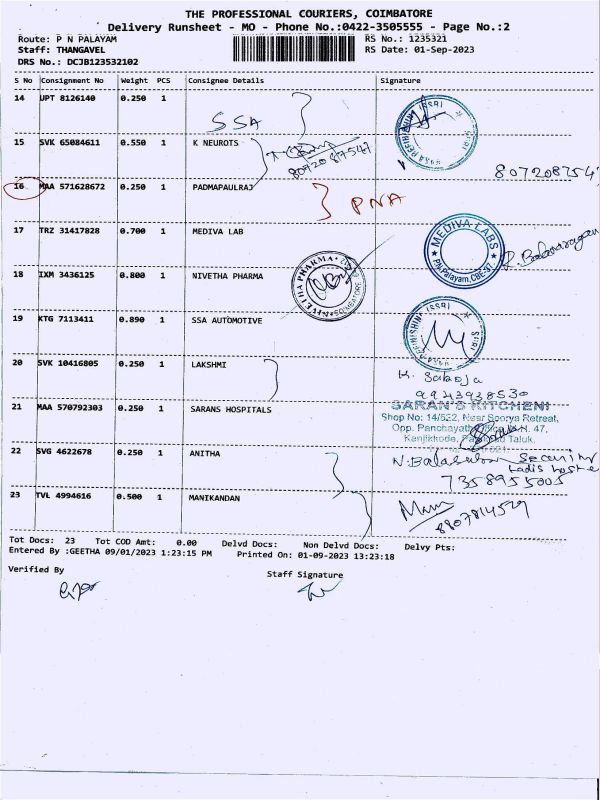 THE PROFESSIONAL COURIERS, COIMBATORE
Delivery Runsheet - MO - Phone No.:0422-3505555 - Page No.:2
Route: P N PALAYAM RS No.: 1235321
Staff: THANGAVEL RS Date: 01-Sep-2023
DRS No.: DCJB123532102
S No Consignment No Weight PCS Consignee Details Signature
14 UPT 8126140 0.250 1
SSA
15 SVK 65084611 0.550 1 K NEUROTS
8072087547
8072087547
16 MAA 571628672 0.250 1 PADMAPAULRAJ
PNA
17 TRZ 31417828 0.700 1 MEDIVA LAB
MEDIVA LABS
P.N.Palayam, CBE-37.
18 IXM 3436125 0.800 1 NIVETHA PHARMA
PHARMA
COIMBATORE
19 KTG 7113411 0.890 1 SSA AUTOMOTIVE
20 SVK 10416805 0.250 1 LAKSHMI
K. Saroja
9943938530
21 MAA 570792303 0.250 1 SARANS HOSPITALS
SARAN'S KITCHEN
Shop No: 14/522, Near Soorya Retreat,
Opp. Panchayath Office, N.H. 47,
Kanjikkode, Taluk,
22 SVG 4622678 0.250 1 ANITHA
Security
7358955005
23 TVL 4994616 0.500 1 MANIKANDAN
8807814529
Tot Docs: 23 Tot COD Amt: 0.00 Delvd Docs: Non Delvd Docs: Delvy Pts:
Entered By :GEETHA 09/01/2023 1:23:15 PM Printed On: 01-09-2023 13:23:18
Verified By Staff Signature